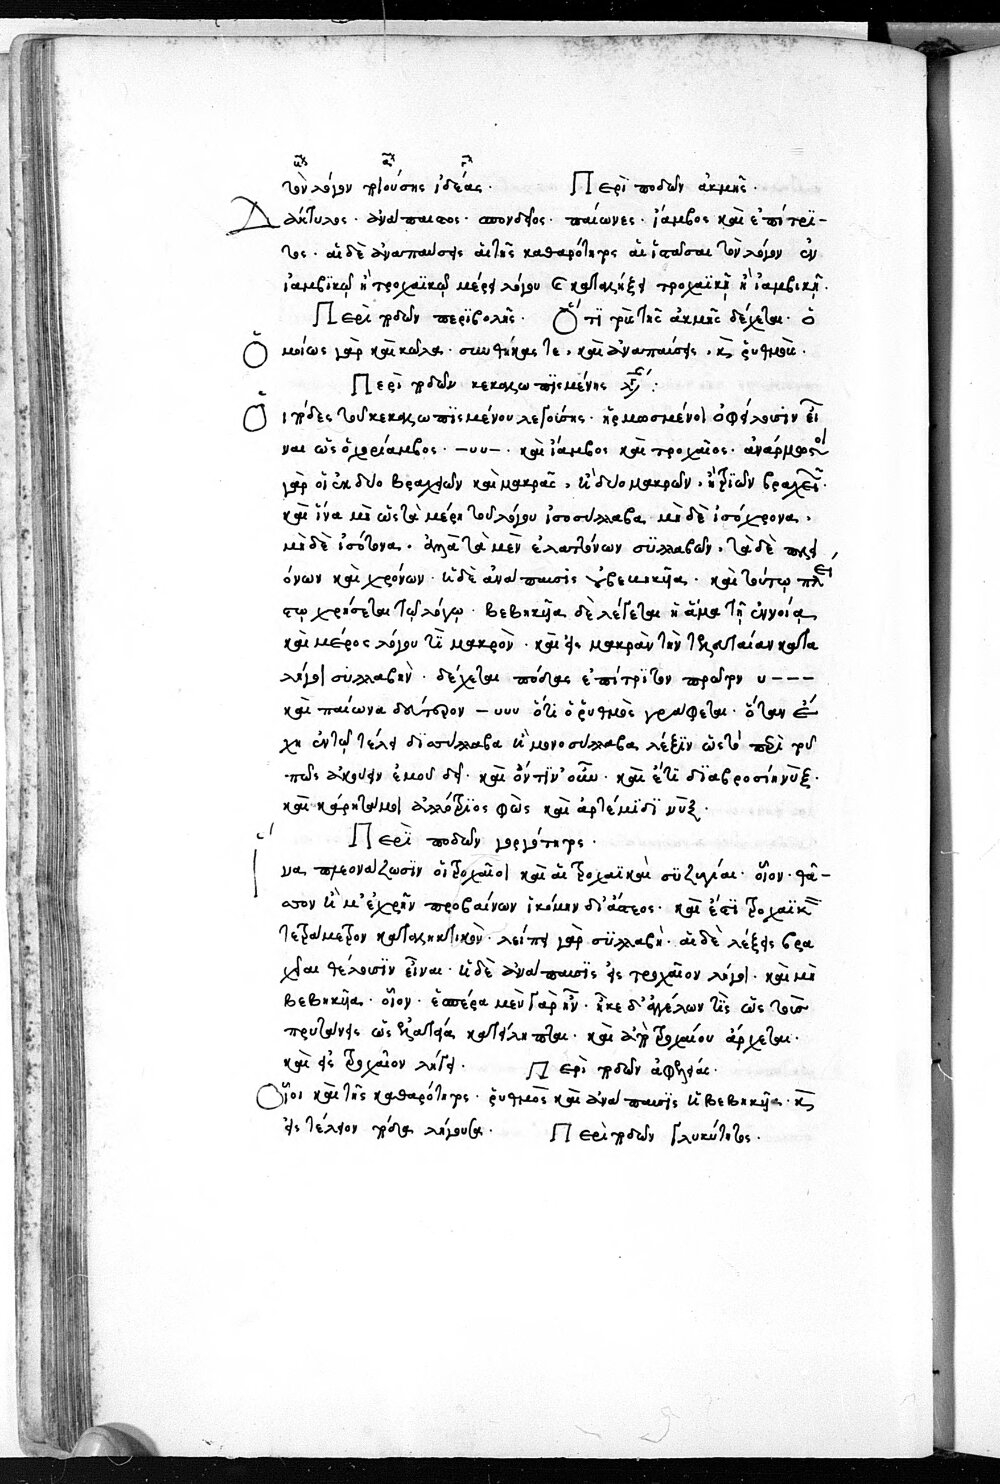 τὸν λόγον ποιούσης ἰδέας. Περὶ ποδῶν ἀκμῆς.
Δάκτυλος. ἀνάπαιστος. σπονδεῖος. παίωνες. ἴαμβος καὶ ἐπίτρι-
τος. αἱ δὲ ἀναπαύσεις αἱ τῆς καθαρότητος αἱ ἱστῶσαι τὸν λόγον ἐν
ἰαμβικῷ ἢ τροχαϊκῷ μέρει λόγου ἢ καταλήξει τροχαϊκῇ ἢ ἰαμβικῇ.
Περὶ ποδῶν περιβολῆς. Ὅτι τῆς ἀκμῆς δέχεται. ὁ
Ὁμοίως γὰρ καὶ κῶλα. συνθήκας τε, καὶ ἀναπαύσεις, καὶ ῥυθμούς.
Περὶ ποδῶν κεκαλλωπισμένης
Οἱ πόδες τοῦ κεκαλλωπισμένου λέξεως. ἡρμοσμένοι ὀφείλουσιν εἶ
ναι ὡς ὁ χορίαμβος. –υυ–. καὶ ἴαμβος καὶ τροχαῖος. ἀνάρμοστοι
γὰρ οἱ ἐκ δύο βραχειῶν καὶ μακρᾶς, ἢ δύο μακρῶν, ἢ τριῶν βραχειῶν.
καὶ ἵνα μὴ ὡς τὰ μέρη τοῦ λόγου ἰσοσύλλαβα μὴ δὲ ἰσόχρονα,
μὴ δὲ ἰσότονα. ἀλλὰ τὰ μὲν ἐλαττόνων συλλαβῶν, τὰ δὲ πλει
όνων καὶ χρόνων. ἡ δὲ ἀνάπαυσις βεβηκυῖα. καὶ τούτῳ πλεί
στῳ χρήσεται τῷ λόγῳ. βεβηκυῖα δὲ λέγεται ἡ ἅμα τῇ ἐννοίᾳ
καὶ μέρος λόγου τι μακρὸν. καὶ εἰς μακρὰν τὴν τελευταίαν κατα
λήγοι συλλαβήν. δέχεται πόδας ἐπίτριτον πρῶτον υ–––
καὶ παίωνα δεύτερον –υυυ ὅτι ὁ ῥυθμὸς γράφεται. ὅταν ἔ
χῃ ἐν τῷ τέλει δισύλλαβα ἢ μονοσύλλαβα λέξιν ὡς τὸ περὶ
πως ἀκούειν ἐμοῦ δεῖ. καὶ ὅντιν' οὖν. καὶ ἔτι δι' ἀβροσίη νύξ.
καὶ κάρηταμοι ἀλλότριος φῶς καὶ ἀρτέμιδι νύξ.
Περὶ ποδῶν γοργότητος.
ἵνα πλεονάζωσιν οἱ τροχαῖοι καὶ αἱ τροχαϊκαὶ συζυγίαι. οἷον. θᾶτ-
τον ἢ μ' ἐχρῆν προβαίνων ἱκόμην δι' ἄστεος. καὶ ἔστι τροχαϊκὸν
τετράμετρον καταληκτικόν. λείπει γὰρ συλλαβή. αἱ δὲ λέξεις βρα
χεῖαι θέλουσιν εἶναι. ἡ δὲ ἀνάπαυσις εἰς τροχαῖον λήγοι. καὶ μὴ
βεβηκυῖα. οἷον. ἑσπέρα μὲν γὰρ ἦν. ἧκε δ' ἀγγέλλων τις ὡς τοὺς
πρυτάνεις ὡς Ἐλάτεια κατείληπται. καὶ ἀπὸ τροχαίου ἄρχεται.
καὶ εἰς τροχαῖον λήγει. Περὶ ποδῶν ἀφελείας.
Οἷοι καὶ τῆς καθαρότητος. ῥυθμὸς καὶ ἀνάπαυσις ἡ βεβηκυῖα. καὶ
εἰς τέλειον πόδα λήγουσα. Περὶ ποδῶν γλυκύτητος.